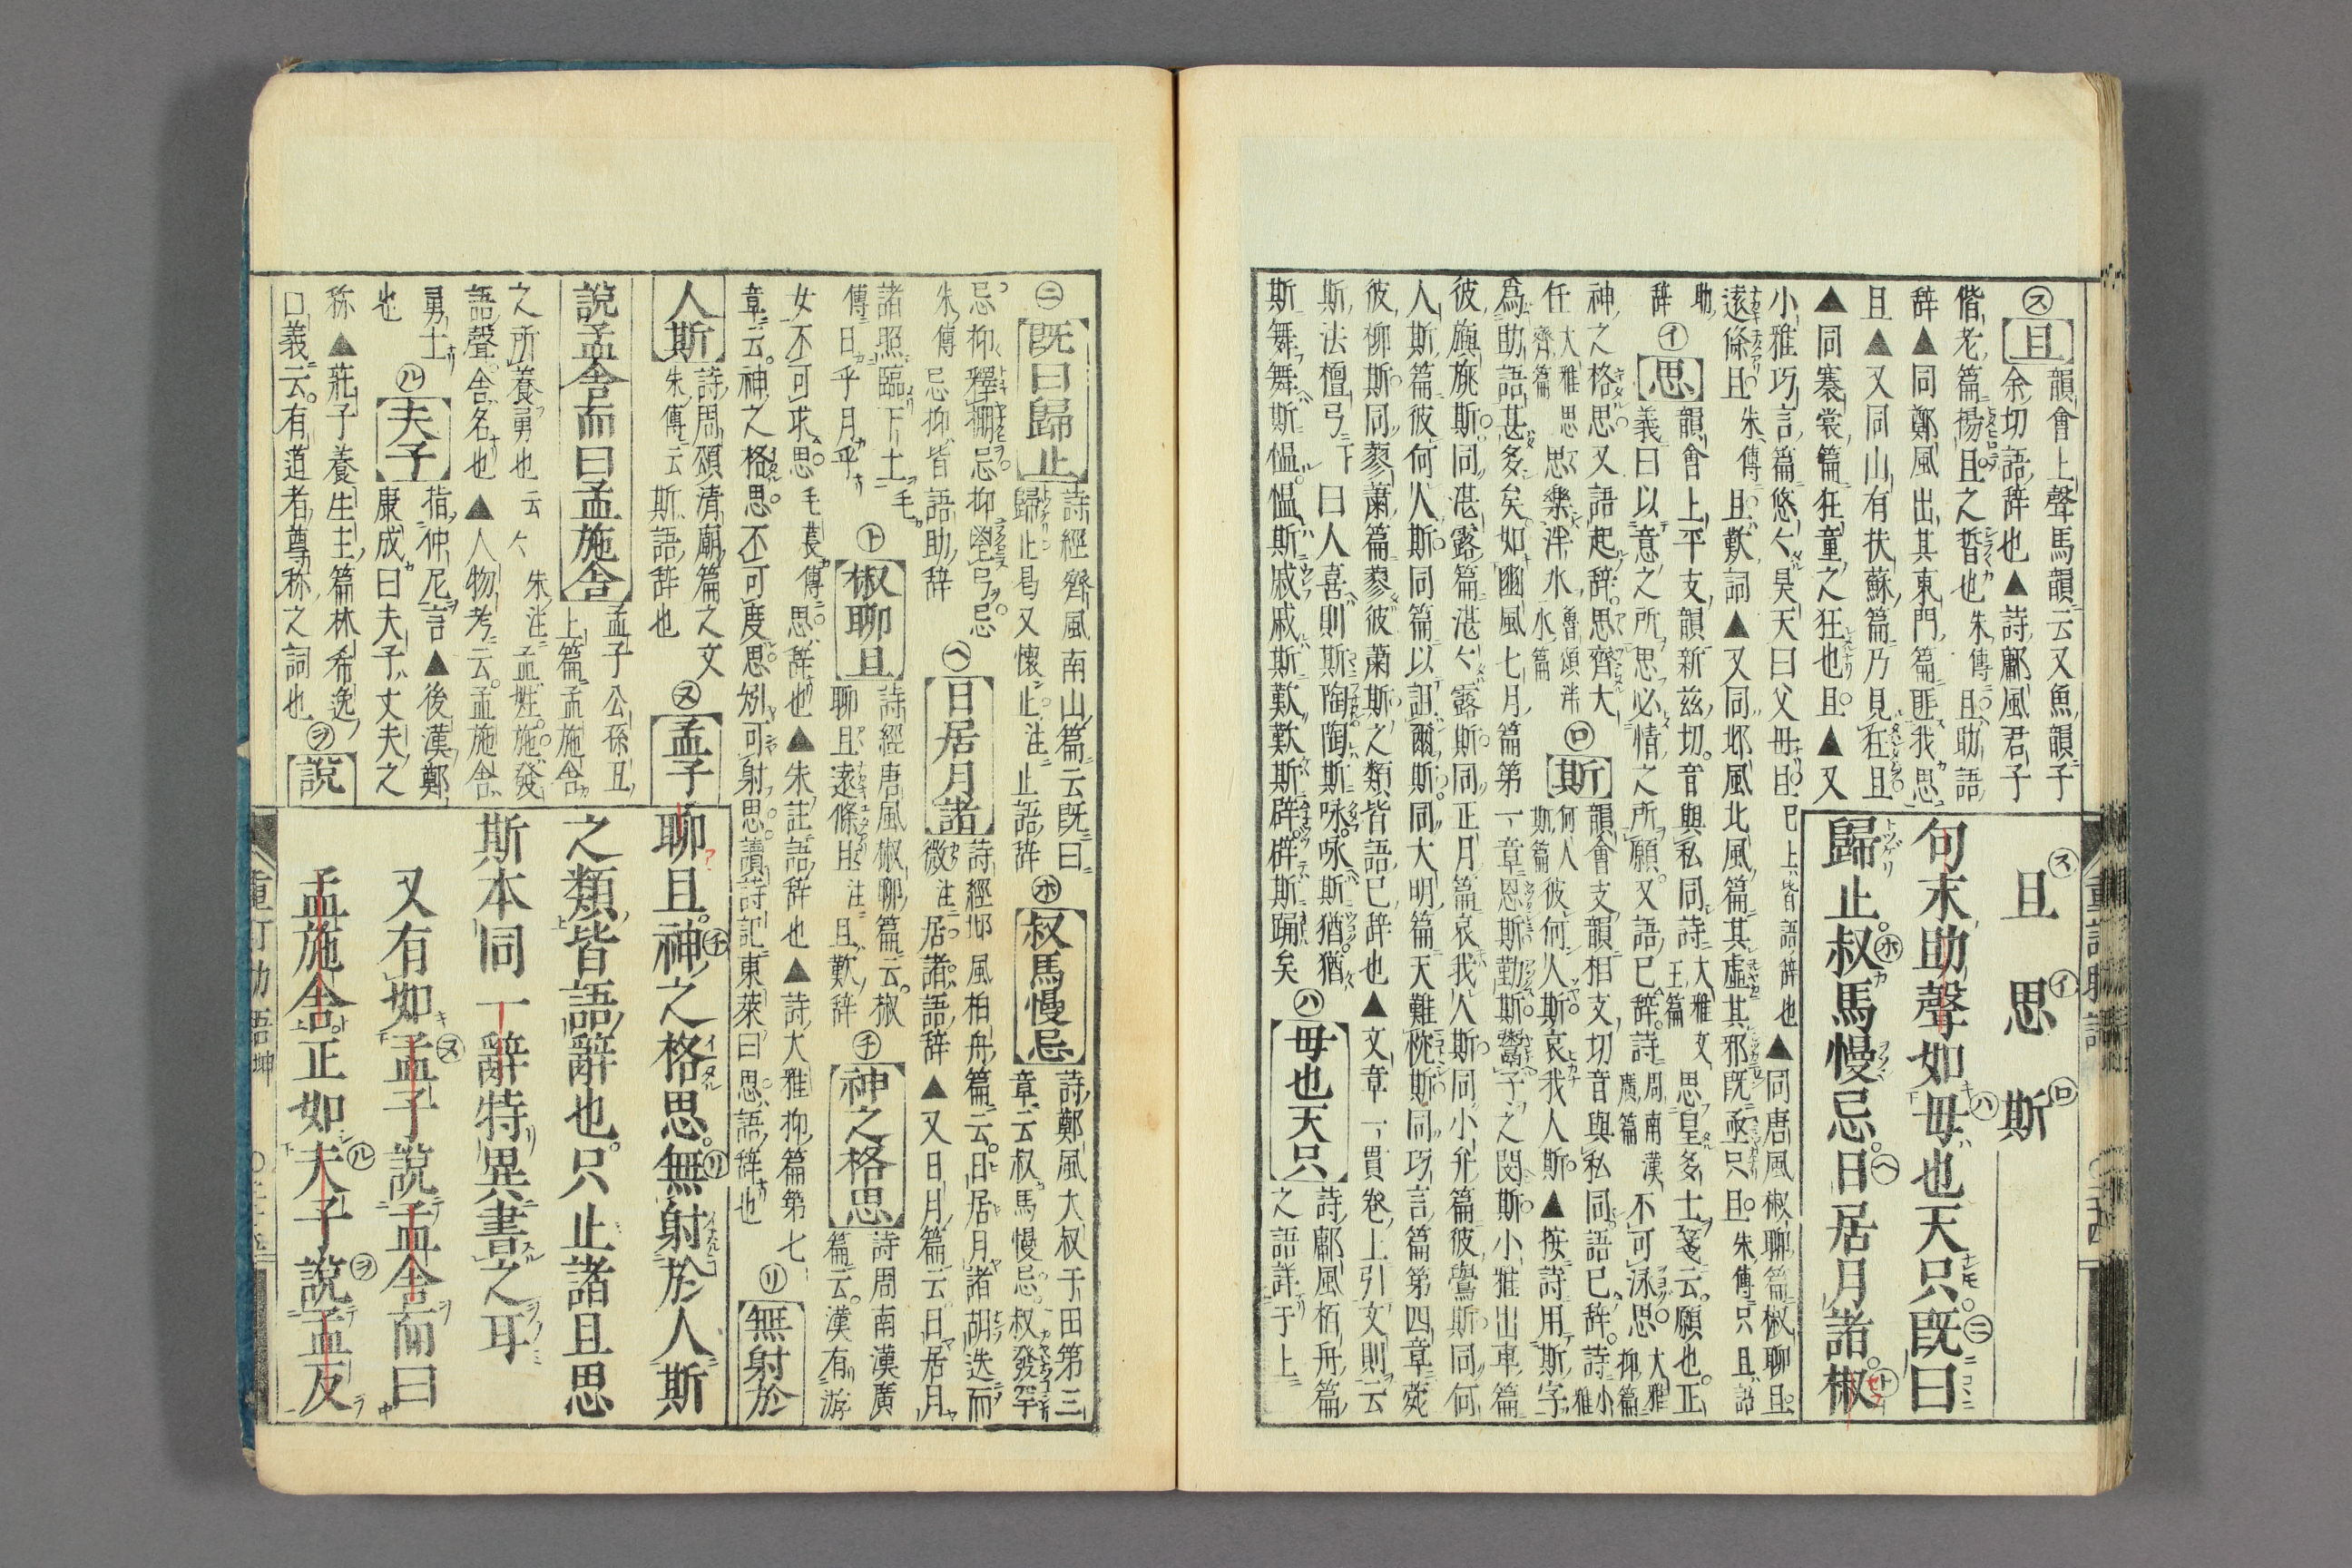 且　思　斯
句末助聲如毋也天只既曰
歸止叔馬慢忌日居月諸椒
㋜且韻會上聲馬韻云又魚韻子
余切語辞也▲詩鄘風君子
偕老篇揚且之晳也朱傳且助語
辞▲同鄭風出其東門篇匪我思
且▲又同山有扶蘇篇乃見狂且
▲同褰裳篇狂童之狂也且▲又
小雅巧言篇悠〻昊天曰父母且已上皆語辞也▲同唐風椒聊篇椒聊且
遠條且朱傳且歎詞▲又同邶風北風篇其虛其邪既亟只且朱傳只且語
助辞
㋑思韻會上平支韻新茲切音與私同詩大雅文王篇思皇多士箋云願也正
義曰以意之所思必情之所願又語已辞詩周南漢廣篇不可泳思大雅抑篇
神之格思又語起辞思齊大任大雅思齊篇思樂泮水魯頌泮水篇
㋺斯韻會支韻相支切音與私同語已辞詩小雅何人斯篇彼何人斯哀我人斯▲按詩用斯字
為助語甚多矣如豳風七月篇第一章恩斯勤斯鬻子之閔斯小雅出車篇
彼旟旐斯同湛露篇湛〻露斯同正月篇哀我人斯同小弁篇彼鸒斯同何
人斯篇彼何人斯同篇以詛爾斯同大明篇天難忱斯同巧言篇第四章蓷
彼柳斯同蓼蕭篇蓼彼蕭斯之類皆語已辞也▲文章一貫卷上引文則云
斯法檀弓下曰人喜則斯陶陶斯咏咏斯猶猶
斯舞舞斯慍慍斯戚戚斯歎歎斯辟辟斯踊矣
㋩毋也天只詩鄘風柏舟篇
之語詳于上
㊁既曰歸止詩經齊風南山篇云既曰
歸止曷又懷止注止語辞
㋭叔馬慢忌詩鄭風大叔于田第三
章云叔馬慢忌叔發罕
忌抑釋掤忌抑鬯弓忌
朱傳忌抑皆語助辞
㋬日居月諸詩經邶風柏舟篇云日居月諸胡迭而
微注居諸語辞▲又日月篇云日居月
諸照臨下土毛
傳曰乎月乎
㋣椒聊且詩經唐風椒聊篇云椒
聊且遠條且注且歎辞
㋠神之格思詩周南漢廣
篇云漢有游
女不可求思毛萇傳思辞也▲朱註語辞也▲詩大雅抑篇第七
章云神之格思不可度思矧可射思讀詩記東萊曰思語辞也
㋷無射於
人斯詩周頌清廟篇之文
朱傳云斯語辞也
㋦孟子
說孟舍而曰孟施舍孟子公孫丑
上篇孟施舍
之所養勇也云〻朱注孟姓施發
語聲舍名也▲人物考云孟施舍
勇士也
㋸夫子指仲尼言▲後漢鄭
康成曰夫子丈夫之
称▲莊子養生主篇林希逸
口義云有道者尊称之詞也
㋾說
聊且神之格思無射於人斯
之類皆語辭也只止諸且思
斯本同一辭特異書之耳
又有如孟子說孟舍而曰
孟施舍正如夫子說孟反
重訂助語坤